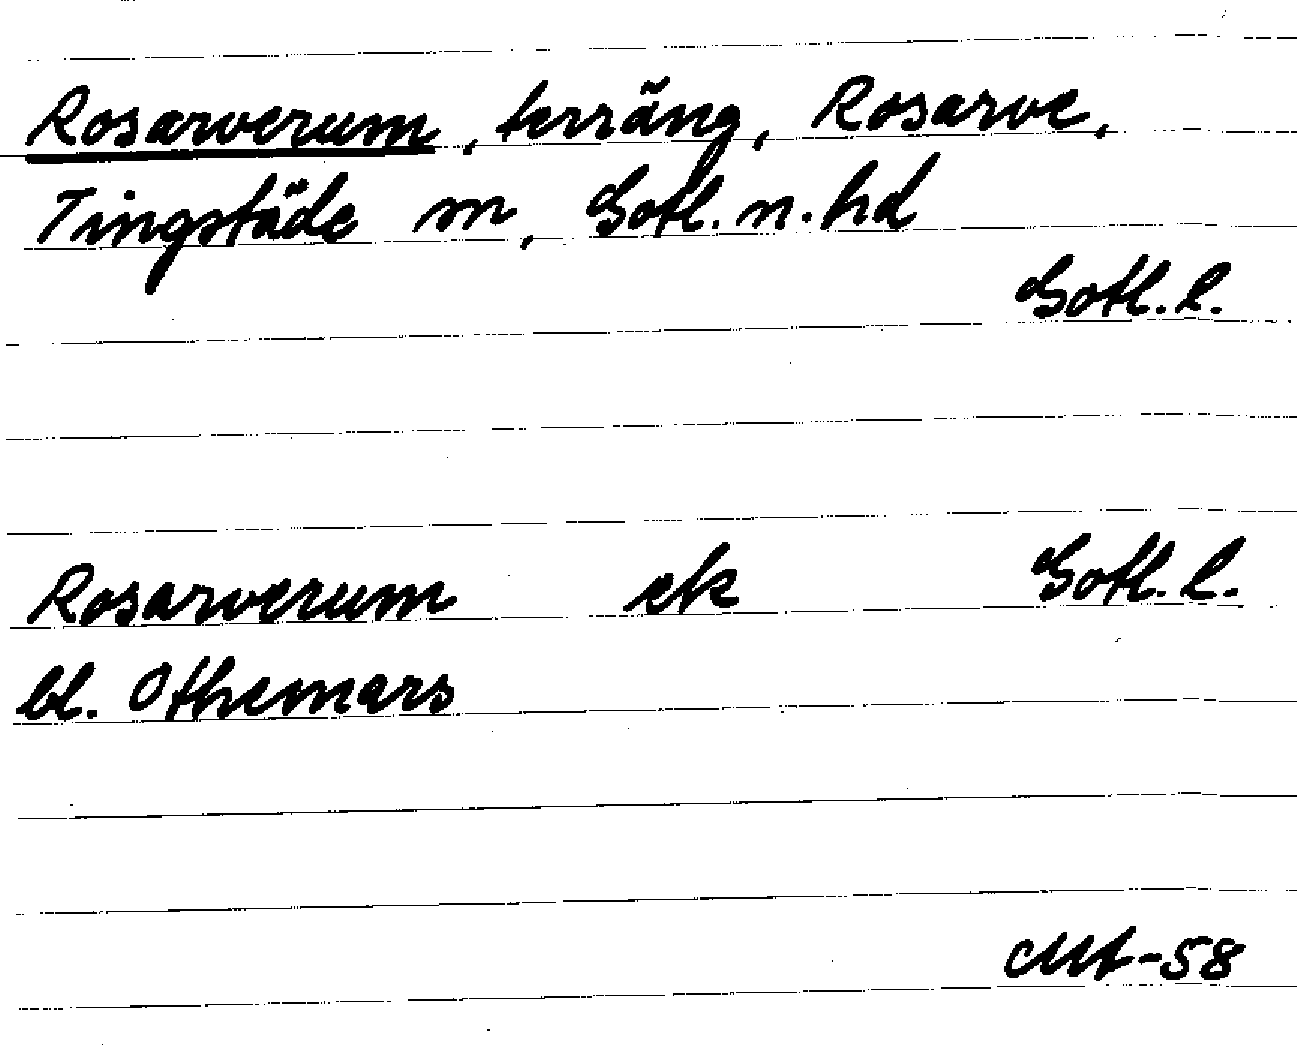 Rosarverum, terräng, Rosarve,
Tingstäde sn, Gotl. n. hd
Gotl. l.
Rosarverum ek Gotl. l.
bl. Othemars
-58